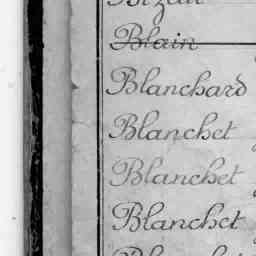 Blain
Blanchard
Blanchet
Blanchet
Blanchet